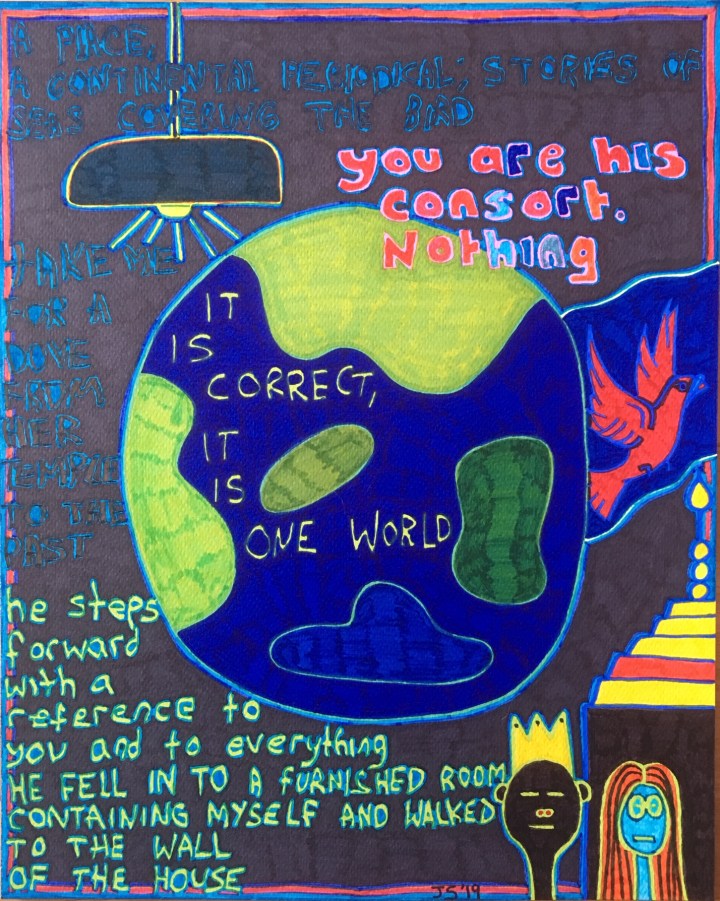 A PLACE,
A CONTINENTAL PERIODICAL; STORIES OF
SEAS COVERING THE BIRD
you are his
consort.
Nothing
TAKE ME
FOR A
DOVE
FROM
HER
TEMPLE
TO THE
PAST
IT
IS
CORRECT,
IT
IS
ONE WORLD
he steps
forward
with a
reference to
you and to everything
HE FELL IN TO A FURNISHED ROOM
CONTAINING MYSELF AND WALKED
TO THE WALL
OF THE HOUSE
JS '19